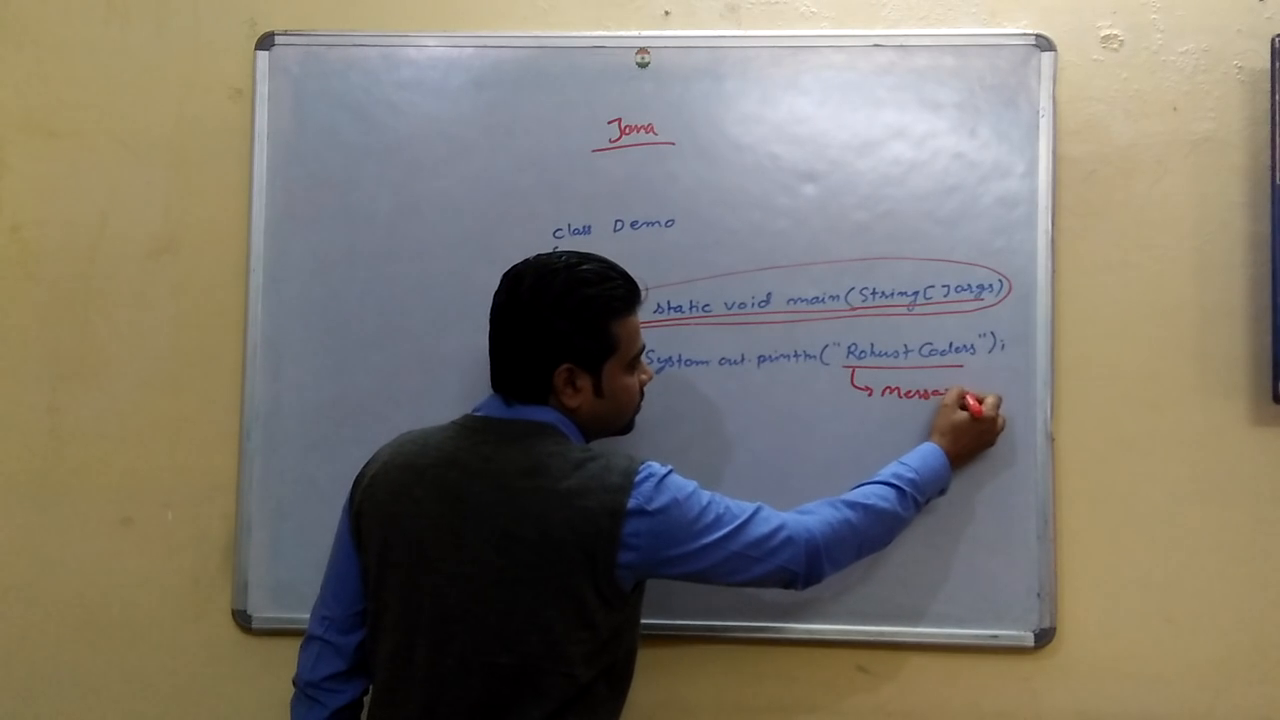 Java
class Demo
static void main(String[]args)
System.out.println("Robust Coders");
Messa